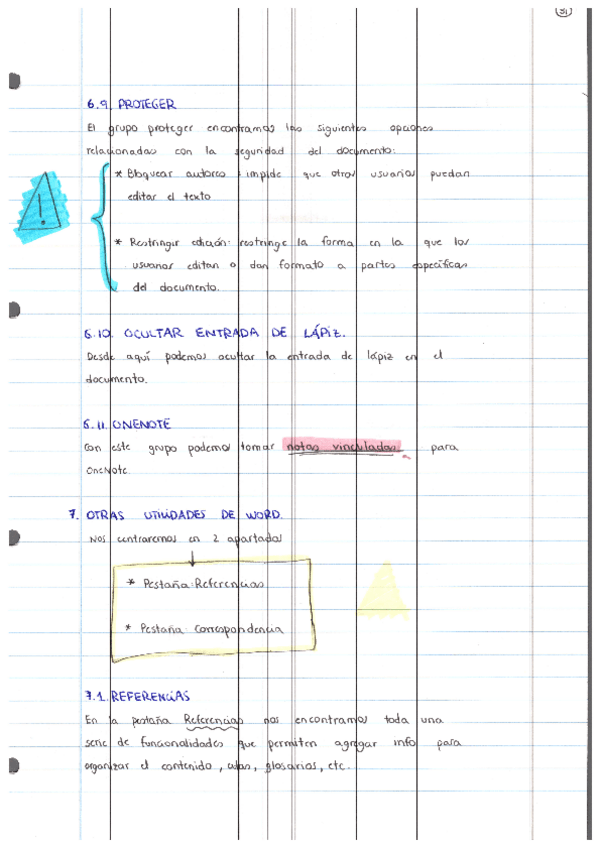 31
6.9. PROTEGER
El grupo proteger encontramos las siguientes opciones
relacionadas con la seguridad del documento:
* Bloquear autores: impide que otros usuarios puedan
editar el texto
!
* Restringir edición: restringe la forma en la que los
usuarios editan o dan formato a partes específicas
del documento.
6.10. OCULTAR ENTRADA DE LÁPIZ.
Desde aquí podemos ocultar la entrada de lápiz en el
documento.
6.11. ONENOTE
Con este grupo podemos tomar notas vinculadas para
OneNote.
7. OTRAS UTILIDADES DE WORD.
Nos centraremos en 2 apartados
* Pestaña: Referencias
* Pestaña: Correspondencia
7.1. REFERENCIAS
En la pestaña Referencias nos encontramos toda una
serie de funcionalidades que permiten agregar info para
organizar el contenido, citas, glosarios, etc.